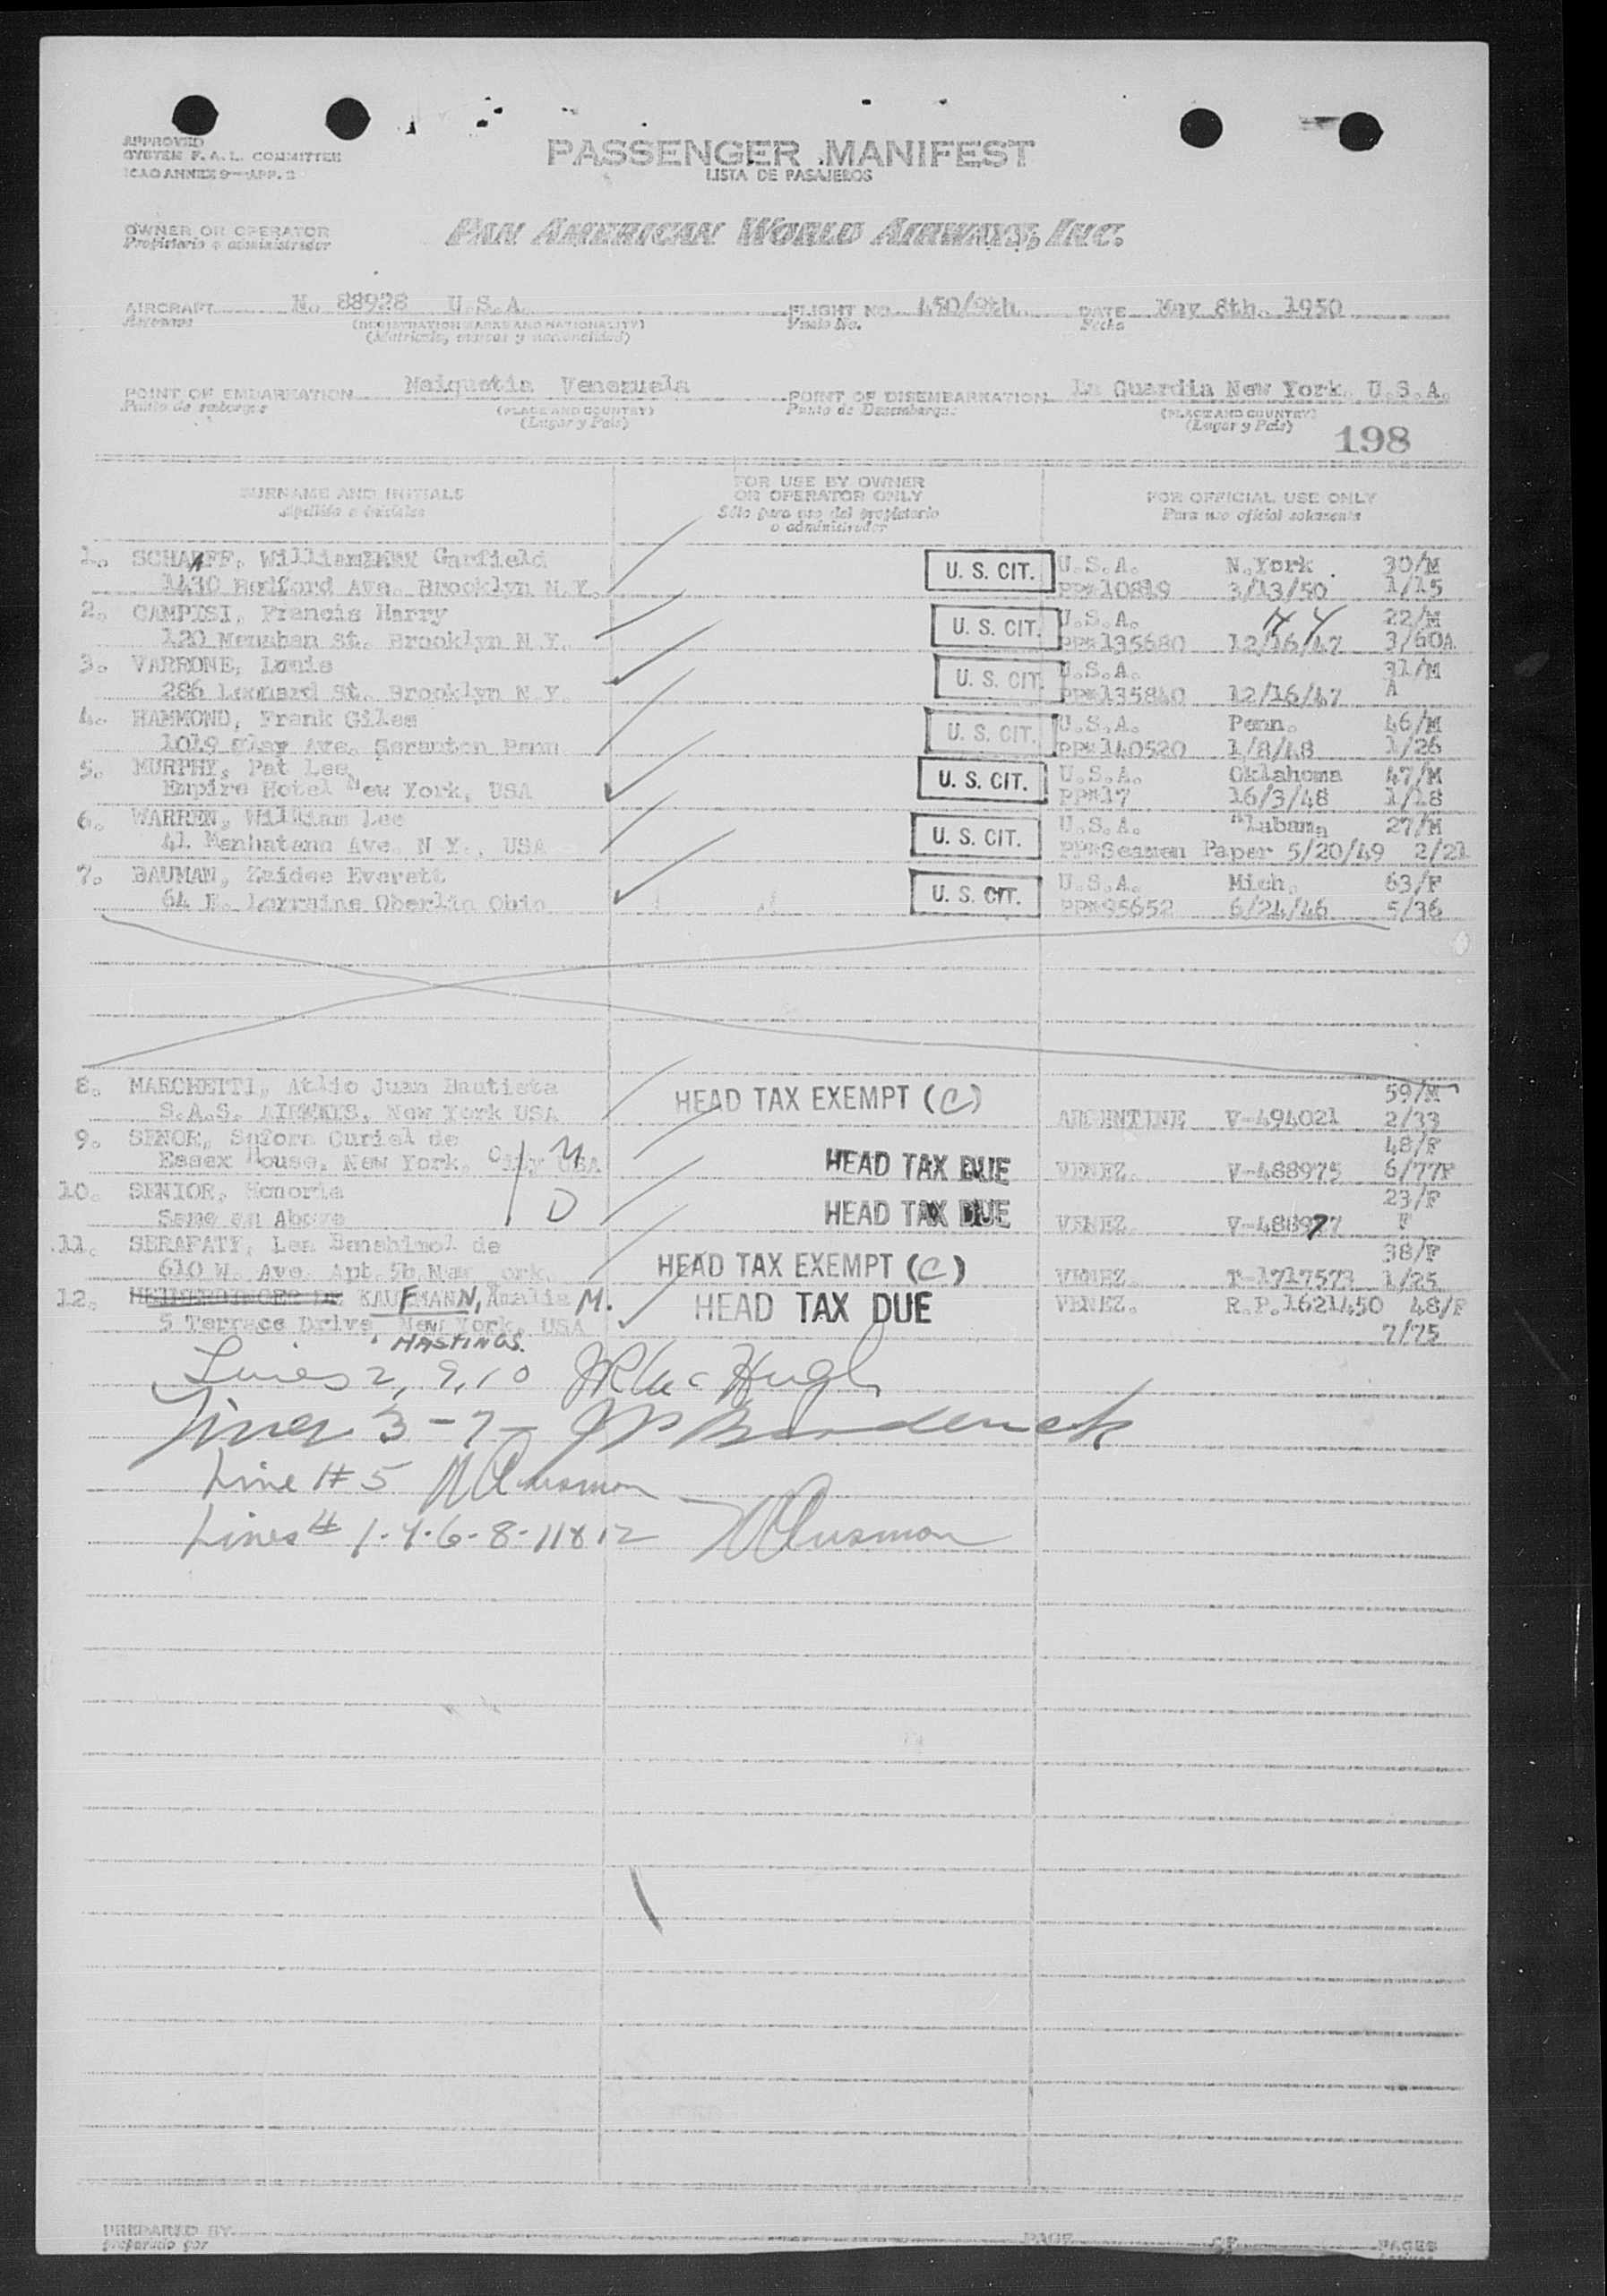 APPROVED
SYSTEM F.A.L. COMMITTEE
ICAO ANNEX 9—APP. 2
PASSENGER MANIFEST
LISTA DE PASAJEROS
OWNER OR OPERATOR
Propietario o administrador
PAN AMERICAN WORLD AIRWAYS, INC.
AIRCRAFT No. 88928 U.S.A. FLIGHT NO. 450/8th. DATE May 8th. 1950
Aeronave (REGISTRATION MARKS AND NATIONALITY) Vuelo No. Fecha
(Matricula, marcas y nacionalidad)
POINT OF EMBARKATION Maiquetia Venezuela POINT OF DISEMBARKATION La Guardia New York. U.S.A.
Punto de embarque (PLACE AND COUNTRY) Punto de Desembarque (PLACE AND COUNTRY)
(Lugar y País) (Lugar y País)
198
SURNAME AND INITIALS FOR USE BY OWNER OR OPERATOR ONLY FOR OFFICIAL USE ONLY
Apellido e iniciales Sólo para uso del propietario o administrador Para uso oficial solamente
1. SCHARFF, William Garfield U. S. CIT. U.S.A. N.York 30/M
1430 Bedford Ave. Brooklyn N.Y. PP#10819 3/13/50 1/15
2. CAMPISI, Francis Harry U. S. CIT. U.S.A. N Y 22/M
120 Menahan St. Brooklyn N.Y. PP#135680 12/16/47 3/60A
3. VARRONE, Louis U. S. CIT. U.S.A. 31/M
286 Leonard St. Brooklyn N.Y. PP#135840 12/16/47 A
4. HAMMOND, Frank Giles U. S. CIT. U.S.A. Penn. 46/M
1019 Clay Ave. Scranton Penn PP#140520 1/8/48 1/26
5. MURPHY, Pat Lee U. S. CIT. U.S.A. Oklahoma 47/M
Empire Hotel New York, USA PP#17 16/3/48 1/18
6. WARREN, William Lee U. S. CIT. U.S.A. Alabama 27/M
41 Manhatann Ave. N Y., USA PP#Seamen Paper 5/20/49 2/21
7. BAUMAN, Zaidee Everett U. S. CIT. U.S.A. Mich. 63/F
64 E. Lorraine Oberlin Ohio PP#95652 6/24/46 5/36
8. MARCHETTI, Atlio Juan Bautista HEAD TAX EXEMPT (C) 59/M
S.A.S. AIRWAYS, New York USA ARGENTINE V-494021 2/33
9. SENOR, Sefora Curiel de 48/F
Essex House, New York, City USA M HEAD TAX DUE VENEZ. V-488975 6/77F
10. SENIOR, Honoria 23/F
Same as Above D HEAD TAX DUE VENEZ. V-488977 F
11. SERAFATY, Lea Benshimol de 38/F
610 W. Ave. Apt. 5b New York. HEAD TAX EXEMPT (C) VENEZ. T-1717573 1/25
12. HEINERDINGER DE KAUFMANN, Amalia M. HEAD TAX DUE VENEZ. R.P.1621450 48/F
5 Terrace Drive New York. USA 7/75
HASTINGS.
Lines 2, 9, 10 JR McHugh
Lines 3-7- J P Broderick
Line # 5
Lines # 1-4-6-8-11&12
PREPARED BY PAGE OF PAGES
preparado por